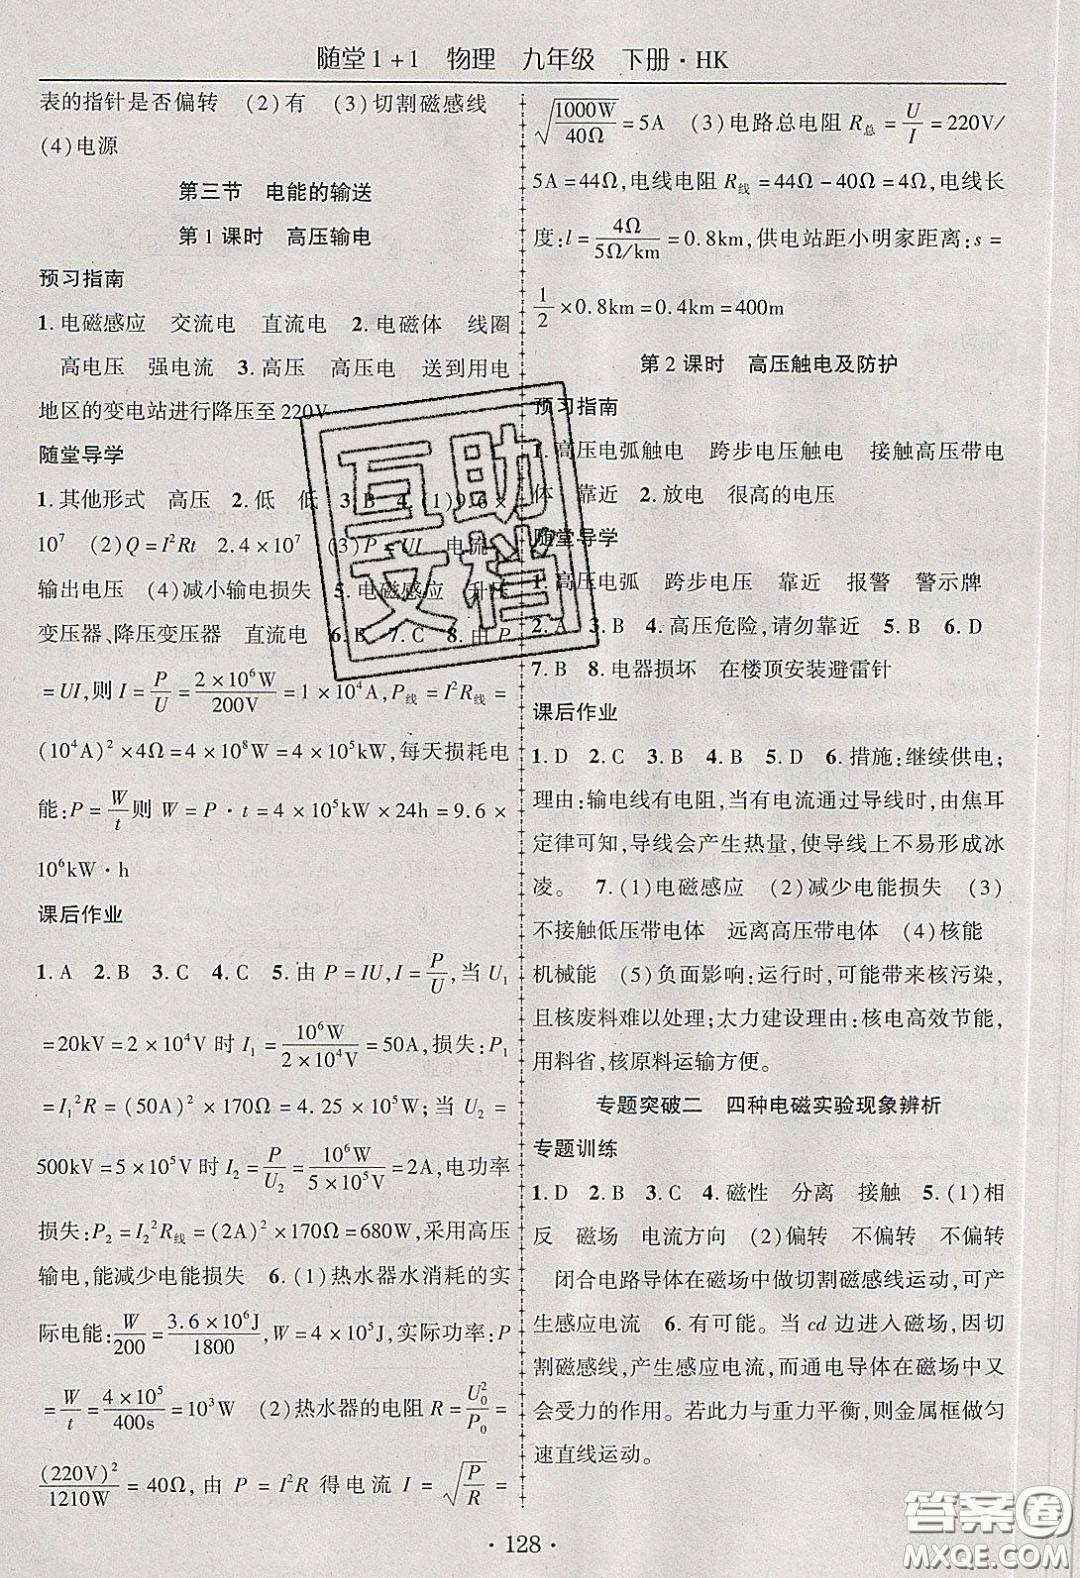 随堂1+1 物理 九年级 下册·HK
表的指针是否偏转 (2)有 (3)切割磁感线
(4)电源
第三节 电能的输送
第1课时 高压输电
预习指南
1.电磁感应 交流电 直流电 2.电磁体 线圈
高电压 强电流 3.高压 高压电 送到用电
地区的变电站进行降压至220V
随堂导学
1.其他形式 高压 2.低 低 3.B 4.(1)9.6×
10⁷ (2)Q=I²Rt 2.4×10⁷ (3)P=UI 电流
输出电压 (4)减小输电损失 5.电磁感应 升压
变压器、降压变压器 直流电 6.B 7.C 8.由P
=UI,则I=P/U=2×10⁶W/200V=1×10⁴A,P线=I²R线=
(10⁴A)²×4Ω=4×10⁸W=4×10⁵kW,每天损耗电
能:P=W/t则W=P·t=4×10⁵kW×24h=9.6×
10⁶kW·h
课后作业
1.A 2.B 3.C 4.C 5.由P=IU,I=P/U,当U₁
=20kV=2×10⁴V时I₁=10⁶W/2×10⁴V=50A,损失:P₁
=I₁²R=(50A)²×170Ω=4.25×10⁵W,当U₂=
500kV=5×10⁵V时I₂=P/U₂=10⁶W/5×10⁵V=2A,电功率
损失:P₂=I₂²R线=(2A)²×170Ω=680W,采用高压
输电,能减少电能损失 6.(1)热水器水消耗的实
际电能:W/200=3.6×10⁶J/1800,W=4×10⁵J,实际功率:P
=W/t=4×10⁵/400s=10³W (2)热水器的电阻R=U₀²/P₀=
(220V)²/1210W=40Ω,由P=I²R得电流I=√(P/R)=
√(1000W/40Ω)=5A (3)电路总电阻R总=U/I=220V/
5A=44Ω,电线电阻R线=44Ω-40Ω=4Ω,电线长
度:l=4Ω/5Ω/km=0.8km,供电站距小明家距离:s=
1/2×0.8km=0.4km=400m
第2课时 高压触电及防护
预习指南
1.高压电弧触电 跨步电压触电 接触高压带电
体 靠近 2.放电 很高的电压
随堂导学
1.高压电弧 跨步电压 靠近 报警 警示牌
2.A 3.B 4.高压危险,请勿靠近 5.B 6.D
7.B 8.电器损坏 在楼顶安装避雷针
课后作业
1.D 2.C 3.B 4.B 5.D 6.措施:继续供电;
理由:输电线有电阻,当有电流通过导线时,由焦耳
定律可知,导线会产生热量,使导线上不易形成冰
凌。 7.(1)电磁感应 (2)减少电能损失 (3)
不接触低压带电体 远离高压带电体 (4)核能
机械能 (5)负面影响:运行时,可能带来核污染,
且核废料难以处理;太力建设理由:核电高效节能,
用料省,核原料运输方便。
专题突破二 四种电磁实验现象辨析
专题训练
1.D 2.B 3.C 4.磁性 分离 接触 5.(1)相
反 磁场 电流方向 (2)偏转 不偏转 不偏转
闭合电路导体在磁场中做切割磁感线运动,可产
生感应电流 6.有可能。当cd边进入磁场,因切
割磁感线,产生感应电流,而通电导体在磁场中又
会受力的作用。若此力与重力平衡,则金属框做匀
速直线运动。
互助
文档
·128·
答案圈
MXQE.COM